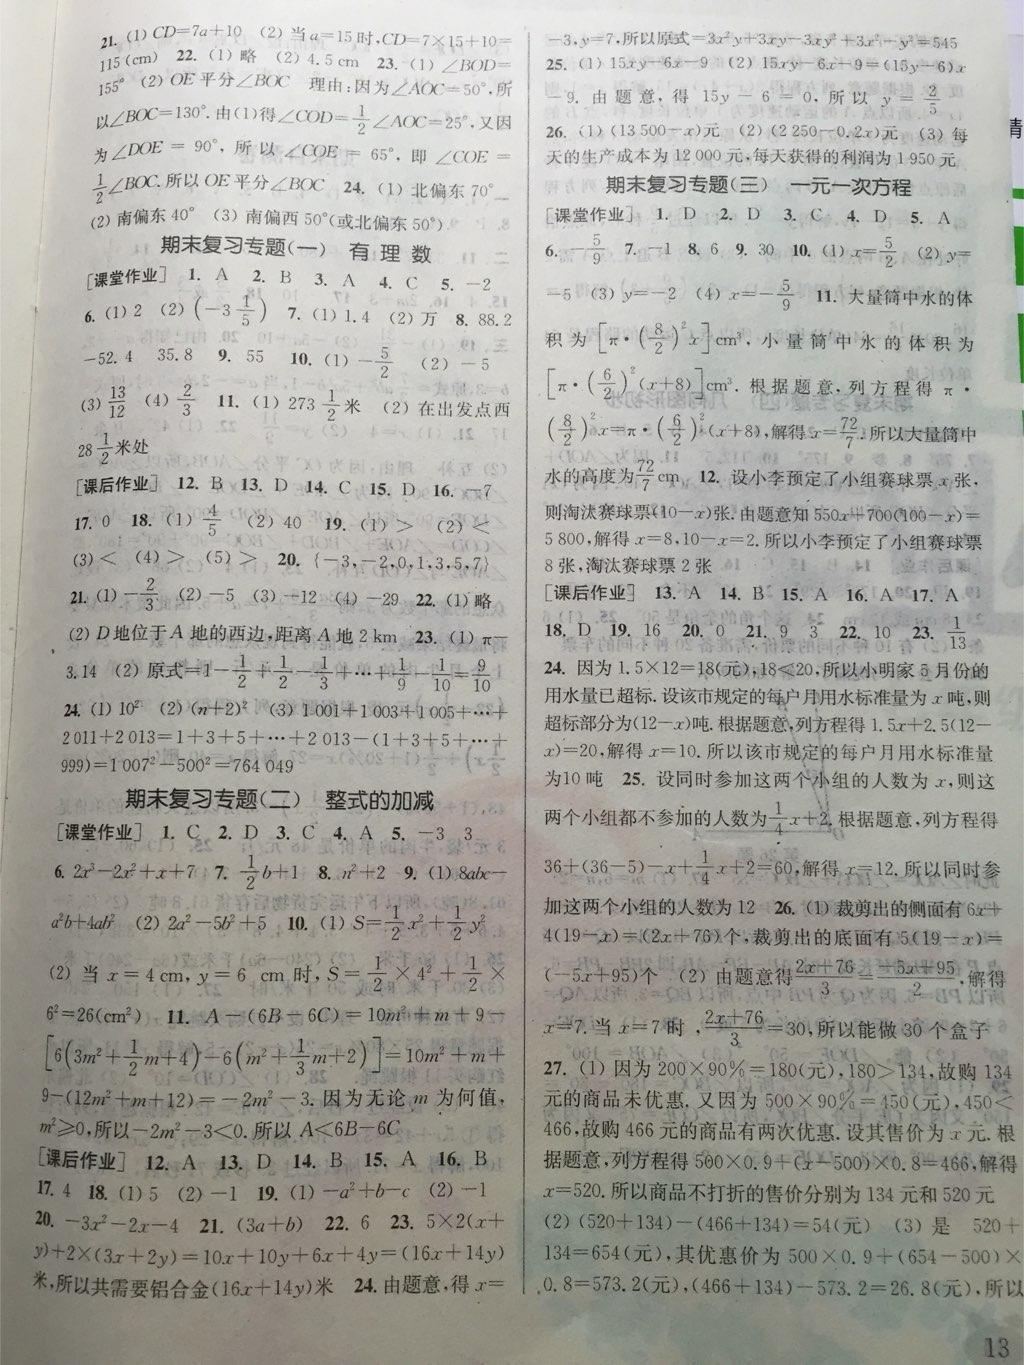 21. (1) CD=7a+10 (2) 当a=15时,CD=7×15+10=
115(cm) 22. (1) 略 (2) 4.5cm 23. (1) ∠BOD=
155° (2) OE平分∠BOC 理由:因为∠AOC=50°,所
以∠BOC=130°.由(1)得∠COD=1/2∠AOC=25°,又因
为∠DOE = 90°, 所以 ∠COE = 65°, 即 ∠COE =
1/2∠BOC.所以OE平分∠BOC 24. (1) 北偏东70°
(2) 南偏东40° (3) 南偏西50°(或北偏东50°)
期末复习专题(一) 有理数
[课堂作业] 1. A 2. B 3. A 4. C 5. -2
6. (1) 2 (2) (-3 1/5) 7. (1) 1.4 (2) 万 8. 88.2
-52.4 35.8 9. 55 10. (1) -5/2 (2) -5
(3) 13/12 (4) 2/3 11. (1) 273 1/2 米 (2) 在出发点西
28 1/2 米处
[课后作业] 12. B 13. D 14. C 15. D 16. -7
17. 0 18. (1) 4/5 (2) 40 19. (1) > (2) <
(3) < (4) > (5) > 20. {-3,-2,0,1,3,5,7}
21. (1) -2/3 (2) -5 (3) -12 (4) -29 22. (1) 略
(2) D地位于A地的西边,距离A地2km 23. (1) π-
3.14 (2) 原式=1-1/2+1/2-1/3+…+1/9-1/10=9/10
24. (1) 10² (2) (n+2)² (3) 1001+1003+1005+…+
2011+2013=1+3+5+…+2013-(1+3+5+…+
999)=1007²-500²=764049
期末复习专题(二) 整式的加减
[课堂作业] 1. C 2. D 3. C 4. A 5. -3 3
6. 2x³-2x²+x+7 7. 1/2b+1 8. n²+2 9. (1) 8abc-
a²b+4ab² (2) 2a²-5b²+5 10. (1) S=1/2x²+1/2y²
(2) 当x=4cm,y=6 cm时,S=1/2×4²+1/2×
6²=26(cm²) 11. A-(6B-6C)=10m²+m+9-
[6(3m²+1/2m+4)-6(m²+1/3m+2)]=10m²+m+
9-(12m²+m+12)=-2m²-3.因为无论m为何值,
m²≥0,所以-2m²-3<0.所以A<6B-6C
[课后作业] 12. A 13. D 14. B 15. A 16. B
17. 4 18. (1) 5 (2) -1 19. (1) -a²+b-c (2) -1
20. -3x²-2x-4 21. (3a+b) 22. 6 23. 5×2(x+
y)+2×(3x+2y)=10x+10y+6x+4y=(16x+14y)
米,所以共需要铝合金(16x+14y)米 24. 由题意,得x=
-3,y=7,所以原式=3x²y+3xy-3xy²+3x²-y²=545
25. (1) 15xy-6x-9 (2) 15xy-6x-9=(15y-6)x
-9. 由题意,得 15y-6=0,所以 y=2/5
26. (1) (13500-x)元 (2) (2250-0.2x)元 (3) 每
天的生产成本为12000元,每天获得的利润为1950元
期末复习专题(三) 一元一次方程
[课堂作业] 1. D 2. D 3. C 4. D 5. A
6. -5/9 7. -1 8. 6 9. 30 10. (1) x=5/2 (2) y=
-5 (3) y=-2 (4) x=-5/9 11. 大量筒中水的体
积为[π·(8/2)²x]cm³,小量筒中水的体积为
[π·(6/2)²(x+8)]cm³.根据题意,列方程得 π·
(8/2)²·x=π·(6/2)²·(x+8),解得x=72/7.所以大量筒中
水的高度为72/7cm 12. 设小李预定了小组赛球票x张,
则淘汰赛球票(10-x)张.由题意知550x+700(100-x)=
5800,解得x=8,10-x=2.所以小李预定了小组赛球票
8张,淘汰赛球票2张
[课后作业] 13. A 14. B 15. A 16. A 17. A
18. D 19. 16 20. 0 21. 9 3 22. 10 23. 1/13
24. 因为1.5×12=18(元),18<20,所以小明家5月份的
用水量已超标.设该市规定的每户月用水标准量为x吨,则
超标部分为(12-x)吨.根据题意,列方程得1.5x+2.5(12-
x)=20,解得x=10.所以该市规定的每户月用水标准量
为10吨 25. 设同时参加这两个小组的人数为x,则这
两个小组都不参加的人数为1/4x+2.根据题意,列方程得
36+(36-5)-x+1/4x+2=60,解得x=12.所以同时参
加这两个小组的人数为12 26. (1) 裁剪出的侧面有6x+
4(19-x)=(2x+76)个,裁剪出的底面有5(19-x)=
(-5x+95)个 (2) 由题意得(2x+76)/3=(-5x+95)/2,解得
x=7.当x=7时,(2x+76)/3=30,所以能做30个盒子
27. (1) 因为200×90%=180(元),180>134,故购134
元的商品未优惠.又因为500×90%=450(元),450<
466,故购466元的商品有两次优惠.设其售价为x元.根
据题意,列方程得500×0.9+(x-500)×0.8=466,解得
x=520.所以商品不打折的售价分别为134元和520元
(2) (520+134)-(466+134)=54(元) (3) 是 520+
134=654(元),其优惠价为500×0.9+(654-500)×
0.8=573.2(元),(466+134)-573.2=26.8(元),所以
13